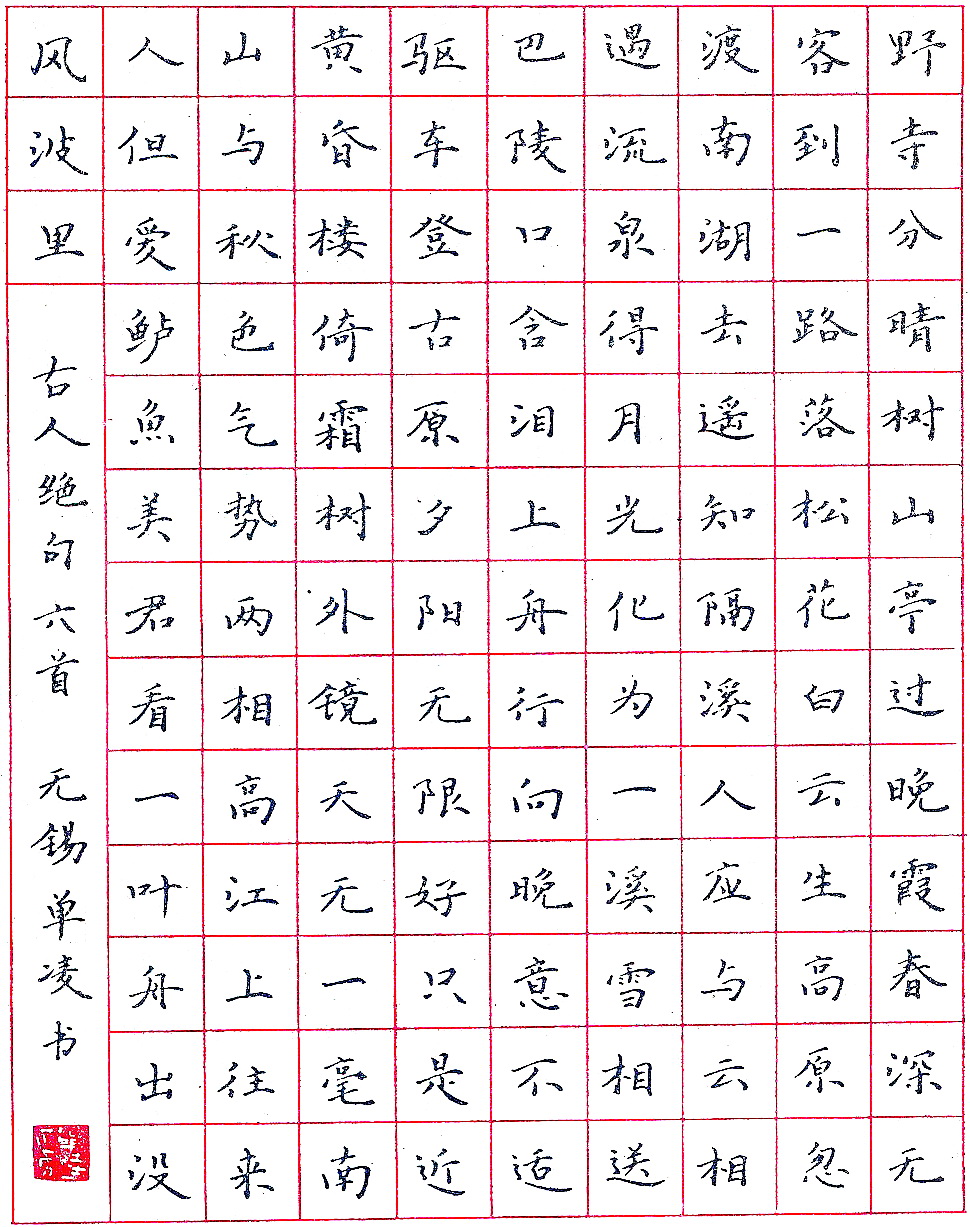 野寺分晴树山亭过晚霞春深无
客到一路落松花白云生高原忽
渡南湖去遥知隔溪人应与云相
遇流泉得月光化为一溪雪相送
巴陵口含泪上舟行向晚意不适
驱车登古原夕阳无限好只是近
黄昏楼倚霜树外镜天无一毫南
山与秋色气势两相高江上往来
人但爱鲈魚美君看一叶舟出没
风波里
古人绝句六首 无锡单凌书